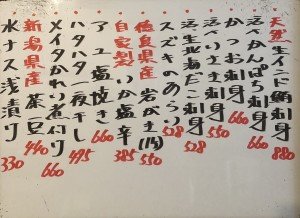 天然生インド鮪刺身 880
活〆かんぱち刺身 660
かつお刺身 660
活〆り土刺身
活生北海だこ刺身 528
スズキのあらり 528
佐良県産岩がき(1ヶ) 550
自家製いか塩辛 385
アユ塩焼き 660
ハタハタ一夜干し 495
メイタかれい煮付け 660
新潟県産茶豆 440
水ナス浅漬け 330